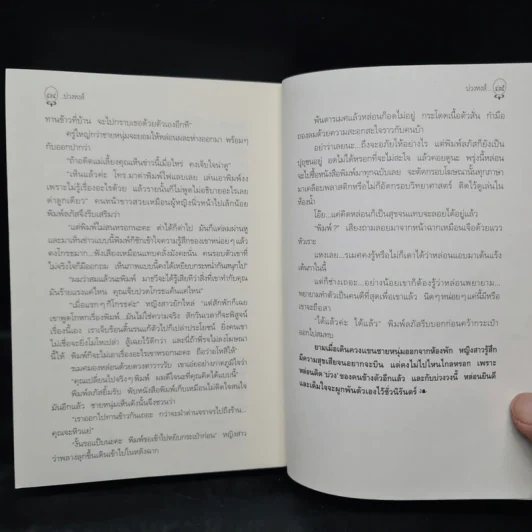 บ่วงหงส์
ทานข้าวที่บ้าน จะไปกราบเธอด้วยตัวเองอีกที"
ครู่ใหญ่กว่าชายหนุ่มจะยอมให้หล่อนผละห่างออกมา พร้อมๆ
กับออกปากว่า
"ถ้าอดีตแม่เลี้ยงคุณเห็นข่าวนี้เมื่อไหร่ คงเจ็บใจน่าดู"
"เห็นแล้วค่ะ โทร.มาด่าพิมพ์ไฟแลบเลย เล่นเอาพิมพ์งง
เพราะไม่รู้เรื่องอะไรด้วย แล้วรายนั้นก็ไม่พูดไม่อธิบายอะไรเลย
ด่าลูกเดียว" คนหน้าขาวสวยเหมือนผู้หญิงนิ่วหน้าไปเล็กน้อย
พิมพ์ลภัสจึงรีบเสริมว่า
"แต่พิมพ์ไม่สนหรอกนะคะ ด่าได้ก็ด่าไป มันก็แค่ลมผ่านหู
และมาเห็นข่าวแบบนี้พิมพ์ก็ชักเข้าใจความรู้สึกของเขาหน่อยๆ แล้ว
คงโกรธมาก...ฟังเสียงเหมือนแทบคลั่งมังคะนั่น คนรอบตัวเขาที่
ไม่จริงใจก็มีออกถม เห็นภาพแบบนี้คงได้เหยียบกระหน่ำกันสนุกไป"
"ผมว่าสมแล้วนะพิมพ์ มารวีจะได้รู้เสียทีว่าสิ่งที่เขาทำกับคุณ
มันร้ายแรงแค่ไหน คุณเจ็บปวดโกรธแค้นแค่ไหน"
"เมื่อแรกๆ ก็โกรธค่ะ" หญิงสาวยักไหล่ "แต่สักพักก็เฉย
เขาพูดโกหกเรื่องพิมพ์...มันไม่ใช่ความจริง สักวันเวลาก็จะพิสูจน์
เรื่องนี้เอง เราเจ็บร้อนดิ้นรนแก้ตัวไปก็เปล่าประโยชน์ ยิ่งคนเขา
ไม่เชื่อจะยิ่งไม่ไหเปล่า สู้เฉยไว้ดีกว่า และนี่ถ้าพีรจไม่ลงโฆษณา
นี้ให้ พิมพ์ก็จะไม่เอาเรื่องอะไรเขาหรอกนะคะ ถือว่าอโหสิให้"
เขมคมองหล่อนด้วยดวงตาวาววับ เขาเอ่ยอย่างภาคภูมิใจว่า
"คุณเปลี่ยนไปจริงๆ พิมพ์ ผมดีใจนะที่คุณคิดได้แบบนี้"
พิมพ์ลภัสยิ้มรับ พับหนังสือพิมพ์เก็บเหมือนไม่ติดใจสนใจ
มันอีกแล้ว ชายหนุ่มเห็นดังนั้นจึงชวนว่า
"เราออกไปทานข้าวกันเถอะ กว่าจะฝ่าด่านจราจรไปถึงร้าน...
คุณจะหิวแย่"
"งั้นรอแป๊บนะคะ พิมพ์ขอเข้าไปหยิบกระเป๋าก่อน" หญิงสาว
ว่าพลางลุกขึ้นเดินเข้าไปในหลังฉาก
บ่วงหงส์
พ้นดารเมศแล้วหล่อนก็อดไม่อยู่ กระโดดเนื้อตัวลั่น กำมือ
ถองลมด้วยความสะอกสะใจราวกับคนบ้า
อย่าว่าเลยนะ...ถึงจะอภัยให้อย่างไร แต่พิมพ์ลภัสก็ยังเป็น
ปุถุชนอยู่ อดไม่ได้หรอกที่จะไม่สะใจ แล้วคอยดูนะ พรุ่งนี้หล่อน
จะไปซื้อหนังสือพิมพ์มาทุกฉบับเลย จะตัดกรอบโฆษณานั้นทุกภาษา
มาเคลือบพลาสติกหรือไม่ก็อัดกรอบวิทยาศาสตร์ ติดไว้ดูเล่นใน
ห้องน้ำ
โอ๊ย...แค่คิดหล่อนก็เป็นสุขจนแทบจะลอยได้อยู่แล้ว
"พิมพ์ ?" เสียงถามลอยมาจากหน้าฉากเหมือนเจือด้วยแวว
หัวเราะ
แหงเลย...รเมศคงรู้หรือไม่ก็เดาได้ว่าหล่อนแอบมาเต้นแร้ง
เต้นกาในนี้
แต่ก็ช่างเถอะ...อย่างน้อยเขาก็ต้องรู้ว่าหล่อนพยายาม...
พยายามทำตัวเป็นคนดีที่สุดเพื่อเขาแล้ว นิดๆ หน่อยๆ แค่นี้มีหรือ
เขาจะถือสา
"ได้แล้วค่ะ ได้แล้ว" พิมพ์ลภัสรีบบอกก่อนคว้ากระเป๋า
ออกไปสมทบ
ยามเมื่อเดินควงแขนชายหนุ่มออกจากห้องพัก หญิงสาวรู้สึก
มีความสุขเสียจนอยากจะบิน แต่คงไม่ไปไหนไกลหรอก เพราะ
หล่อนติด 'บ่วง' ของคนข้างตัวอีกแล้ว และกับบ่วงวงนี้ หล่อนยินดี
และเต็มใจจะผูกพันตัวเองไว้ชั่วนิรันดร์